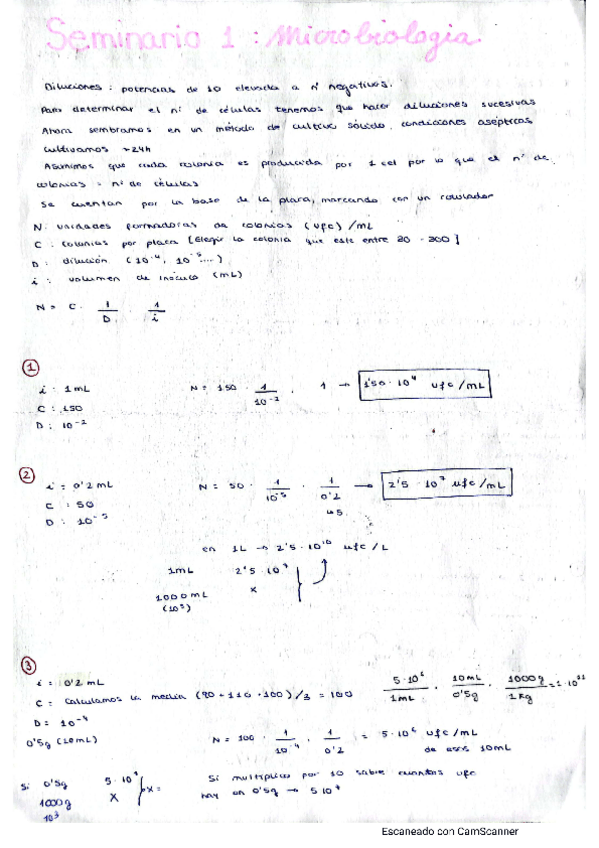 Seminario 1 : Microbiologia.
Diluciones : potencias de 10 elevada a nº negativos.
Para determinar el nº de células tenemos que hacer diluciones sucesivas
Ahora sembramos en un método de cultivo sólido, condiciones asépticas
cultivamos ~24h
Asumimos que cada colonia es producida por 1 cel por lo que el nº de
colonias = nº de células
Se cuentan por la base de la placa, marcando con un rotulador
N: unidades formadoras de colonias (ufc) /mL
C : colonias por placa [Elegir la colonia que este entre 20 - 300]
D : dilución (10⁻⁴, 10⁻⁵....)
i : volumen de inóculo (mL)
N = C · 1/D · 1/i
①
i : 1mL N = 150 · 1/10⁻² · 1 → 1'50·10⁴ ufc/mL
C : 150
D : 10⁻²
②
i : 0'2 mL N = 50 · 1/10⁻⁵ · 1/0'2 → 2'5 · 10⁷ ufc/mL
C : 50 ↳5
D : 10⁻⁵
en 1L → 2'5 · 10¹⁰ ufc/L
1mL 2'5 · 10⁷
1000mL x
(10³)
③
i = 0'2 mL 5·10⁶/1mL · 10mL/0'5g · 1000g/1Kg = 1·10¹¹
C = Calculamos la media (90+110+100)/3 = 100
D = 10⁻⁴
0'5g (10mL) N = 100 · 1/10⁻⁴ · 1/0'2 = 5·10⁶ ufc/mL
de esos 10mL
Si 0'5g 5·10⁷ x= Si multiplico por 10 sabre cuantos ufc
1000g X hay en 0'5g → 5·10⁷
10³
Escaneado con CamScanner